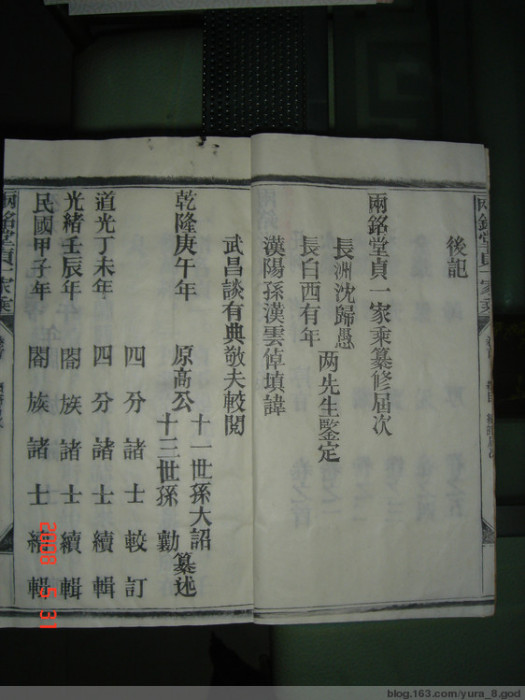 兩銘堂貞一家乘
後記
兩銘堂貞一家乘纂修屆次
長洲沈歸愚
长白西有年
两先生鑒定
漢陽孫漢雲倬填諱
武昌談有典敬夫較閱
乾隆庚午年 原高公
十一世孫大詔
十三世孫 勷
纂述
四分諸士較訂
道光丁未年 四分諸士續輯
光緒壬辰年 闔族諸士續輯
民國甲子年 闔族諸士續輯
兩銘堂貞一家乘
2008 5 31
blog.163.com/yura_8.god